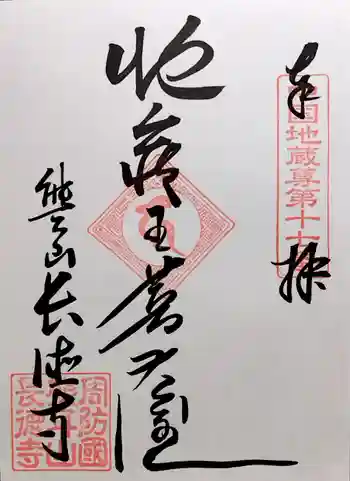 奉拝
国地蔵尊第十七
地蔵王菩薩
長徳寺
周防國
山
長徳寺